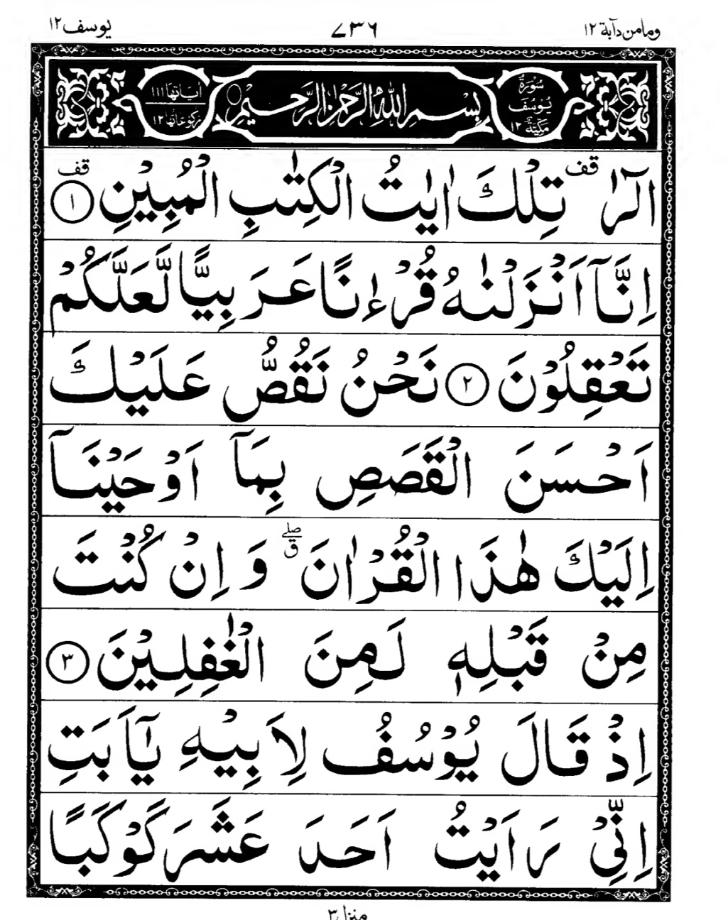 ومامن دآبة ١٢ ٧٣٦ يوسف ١٢
سُورَةُ يُوسُفَ مَكِّيَّة ١٢ بِسْمِ اللهِ الرَّحْمٰنِ الرَّحِيْمِ اياتها ١١١ ركوعاتها ١٢
الٓرٰ ۫ قف تِلْكَ اٰيٰتُ الْكِتٰبِ الْمُبِيْنِ ۱ قف
اِنَّآ اَنْزَلْنٰهُ قُرْءٰنًا عَرَبِيًّا لَّعَلَّكُمْ
تَعْقِلُوْنَ ۲ نَحْنُ نَقُصُّ عَلَيْكَ
اَحْسَنَ الْقَصَصِ بِمَآ اَوْحَيْنَآ
اِلَيْكَ هٰذَا الْقُرْاٰنَ ۖق وَ اِنْ كُنْتَ
مِنْ قَبْلِهٖ لَمِنَ الْغٰفِلِيْنَ ۳
اِذْ قَالَ يُوْسُفُ لِاَبِيْهِ يٰٓاَبَتِ
اِنِّيْ رَاَيْتُ اَحَدَ عَشَرَ كَوْكَبًا
منزل ٣